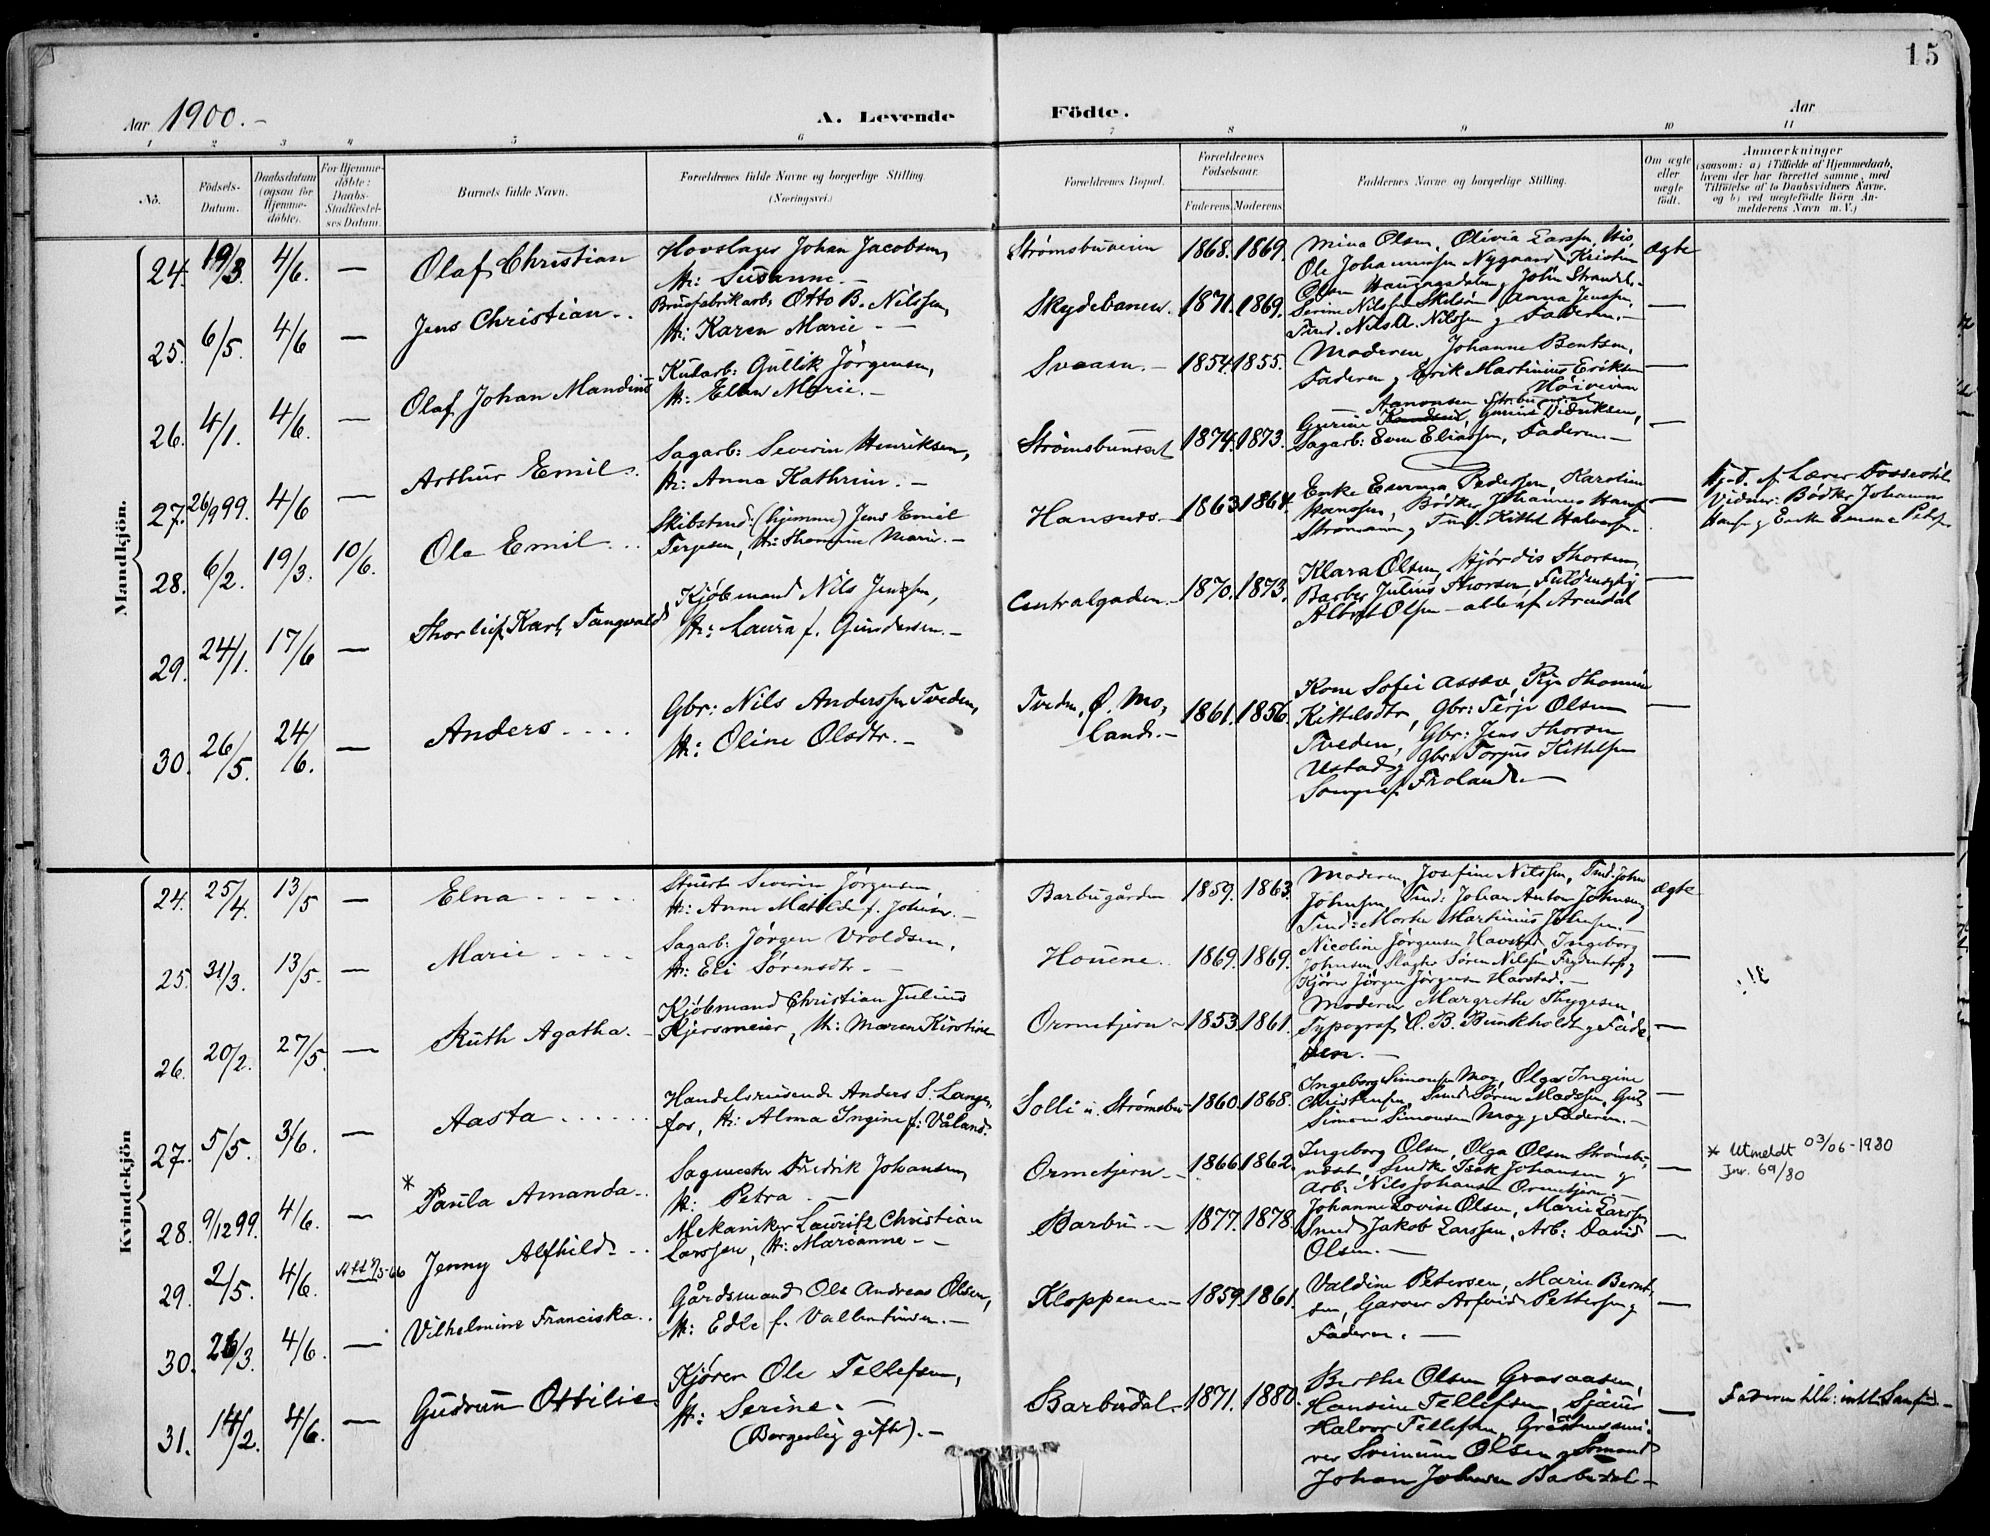 15
Aar 1900.- A. Levende Födte. Aar
1 2 3 4 5 6 7 8 9 10 11
No. Födsels-Datum. Daabsdatum (ogsaa for Hjemmedöbte). For Hjemmedöbte: Daabs-Stadfæstelses Datum. Barnets fulde Navn. Forældrenes fulde Navne og borgerlige Stilling (Næringsvei.) Forældrenes Bopæl. Forældrenes Födselsaar. Faderens. Moderens. Faddernes Navne og borgerlige Stilling. Om ægte eller uægte födt. Anmærkninger (saasom: a) i Tilfælde af Hjemmedaab, hvem der har forrettet samme, med Tilföielse af to Daabsvidners Navne, og b) ved uægtefödte Börn Anmelderens Navn m. V.)
Mandkjön.
24. 19/3. 4/6. — Olaf Christian
Hovslager Johan Jacobsen,
H: Susanne. —
Strømsbuveien 1868. 1869.
Mina Olsen, Olivia Larssn, His,
Ole Johannessen Nygaard, Kristen
Olsen Haugaasdalen, John Strandli.
ægte
25. 6/5. 4/6 — Jens Christian..
Brusfabrikarb. Otto B. Nilssen,
H: Karen Marie. —
Skydebanen. 1871. 1869.
Serine Nilssen Skilsøn, Anna Jenssen,
Tmd. Nils A. Nilssen g Faderen. —
26. 4/1. 4/6. — Olaf Johan Mandius
Kularb: Gullik Jörgensen,
H: Ellen Marie. —
Sveasn. — 1854. 1855.
Moderen, Johanne Bentsen,
Faderen g Erik Martinius Eriksen
Høiveien
27. 26/9 99. 4/6 — Arthur Emil.
Sagarb: Severin Henriksen,
H: Anna Kathrine. —
Strømsbunæset 1874. 1873.
Aanonsen Strbunæset
Gurine Knudsen, Gurine Didriksen,
Sagarb: Even Eliassen, Faderen. —
28. 6/2. 19/3. 10/6. Ole Emil...
Skibstmd: (hjemme) Jens Emil
Terjesen, H: Thomine Marie. —
Hansnes. — 1863. 1864.
Enke Emma Pedersen, Karoline
Hansen, Bødker Johannes Hans
Strømann g Tmd. Kittel Halvorsen. —
Hj.-D. af Lærer Fosseotil
Vidner: Bødker Johannes
Hans g Enke Emma Peders
29. 24/1. 17/6 — Thorleif Karl Tangvald
Kjöbmand Nils Jensen,
H: Laura f. Gundersen. —
Centralgaden. — 1870. 1873.
Klara Olsen, Hjördis Thorsen,
Barber Julius Thorsen, Fuldmægtig
Albert Olsen — alle af Arendal
30. 26/5. 24/6. — Anders....
Gbr: Nils Anderssen Tveden,
H: Oline Olsdtr. —
Tveden, Ø. Moland. — 1861. 1856.
Kone Sofie Assev, Pige Thomine
Kittelsdtr, Gbr: Terje Olsen
Tveden, Gbr: Jens Thorsen
Ustad g Gbr: Torjus Kittelsen
Songe af Froland. —
Kvindekjön
24. 25/4. 13/5 — Elna.....
Stuert Severin Jörgensen,
H: Anne Matilde f. Johnsn. —
Barbugården 1859. 1863
Moderen, Josefine Nilssen, Tmd: John
Johnsen, Tmd: Johan Anton Johnsen g
Tmd: Morten Martinius Johnsen. —
ægte
25. 31/3. 13/5. — Marie....
Sagarb: Jörgen Vroldsen,
H: Eli Sörensdtr. —
Houene. 1869. 1869.
Nicoline Jörgensen Havstad, Ingeborg
Johnsen, Slagter Sören Nilssen g
Kjörer Jörgen Jörgensen Havstad. —
26. 20/2. 27/5. — Ruth Agatha. —
Kjöbmand Christian Julius
Hjersmeier, H: Maren Kirstine
Ormetjern — 1853. 1861.
Moderen Margrethe Thygesen,
Typograf O. B. Bunkholdt g Fade-
ren. —
27. 5/5. 3/6. — Aasta......
Handelsreisende Anders S. Lange-
fos, H: Alma Ingine f. Våland.
Solli i. Strømsbu 1860. 1868.
Ingeborg Simonsen Moy, Olga Ingine
Christensen, Smed Sören Madssen, Gut
Simon Simonsen Moy g Faderen. —
28. 9/12 99. 4/6. — * Paula Amanda..
Sagmester Fredrik Johansen,
H: Petra —
Ormetjern — 1866. 1862.
Ingeborg Olsen, Olga Olsen Strømsbu-
næset, Snedker Isak Johansen g
Arb: Nils Johansen Ormetjern. —
* Utmeldt 03/06-1930
Jnr. 69/30
29. 2/5. 4/6. Att 9/5-66 Jenny Alfhild...
Mekaniker Lauritz Christian
Larssen, H: Marianne —
Barbu — 1877. 1878.
Johanne Lovise Olsen, Marie Larssen,
Smed Jakob Larssen, Arb: David
Olsen. —
30. 26/3. 4/6. — Vilhelmine Franciska..
Gårdsmand Ole Andreas Olsen,
H: Edle f. Vallentinsen. —
Kloppene — 1859. 1861.
Valdine Petersen, Marie Bernt-
sen, Garver Arfvid Pettersen g
Faderen. —
31. 14/2. 4/6. — Gudrun Ottilie
Kjörer Ole Tellefsen,
H: Serine. —
(Borgerlig gifte). —
Barbudal. 1871. 1880.
Berthe Olsen Graaasen,
Hansine Tellefsen, Sjauer
Halvor Tellefsen, 
Svennum Olsen g Sömand
Johan Johnsen Barbudal. —
Faderen till: intl. Samfund —